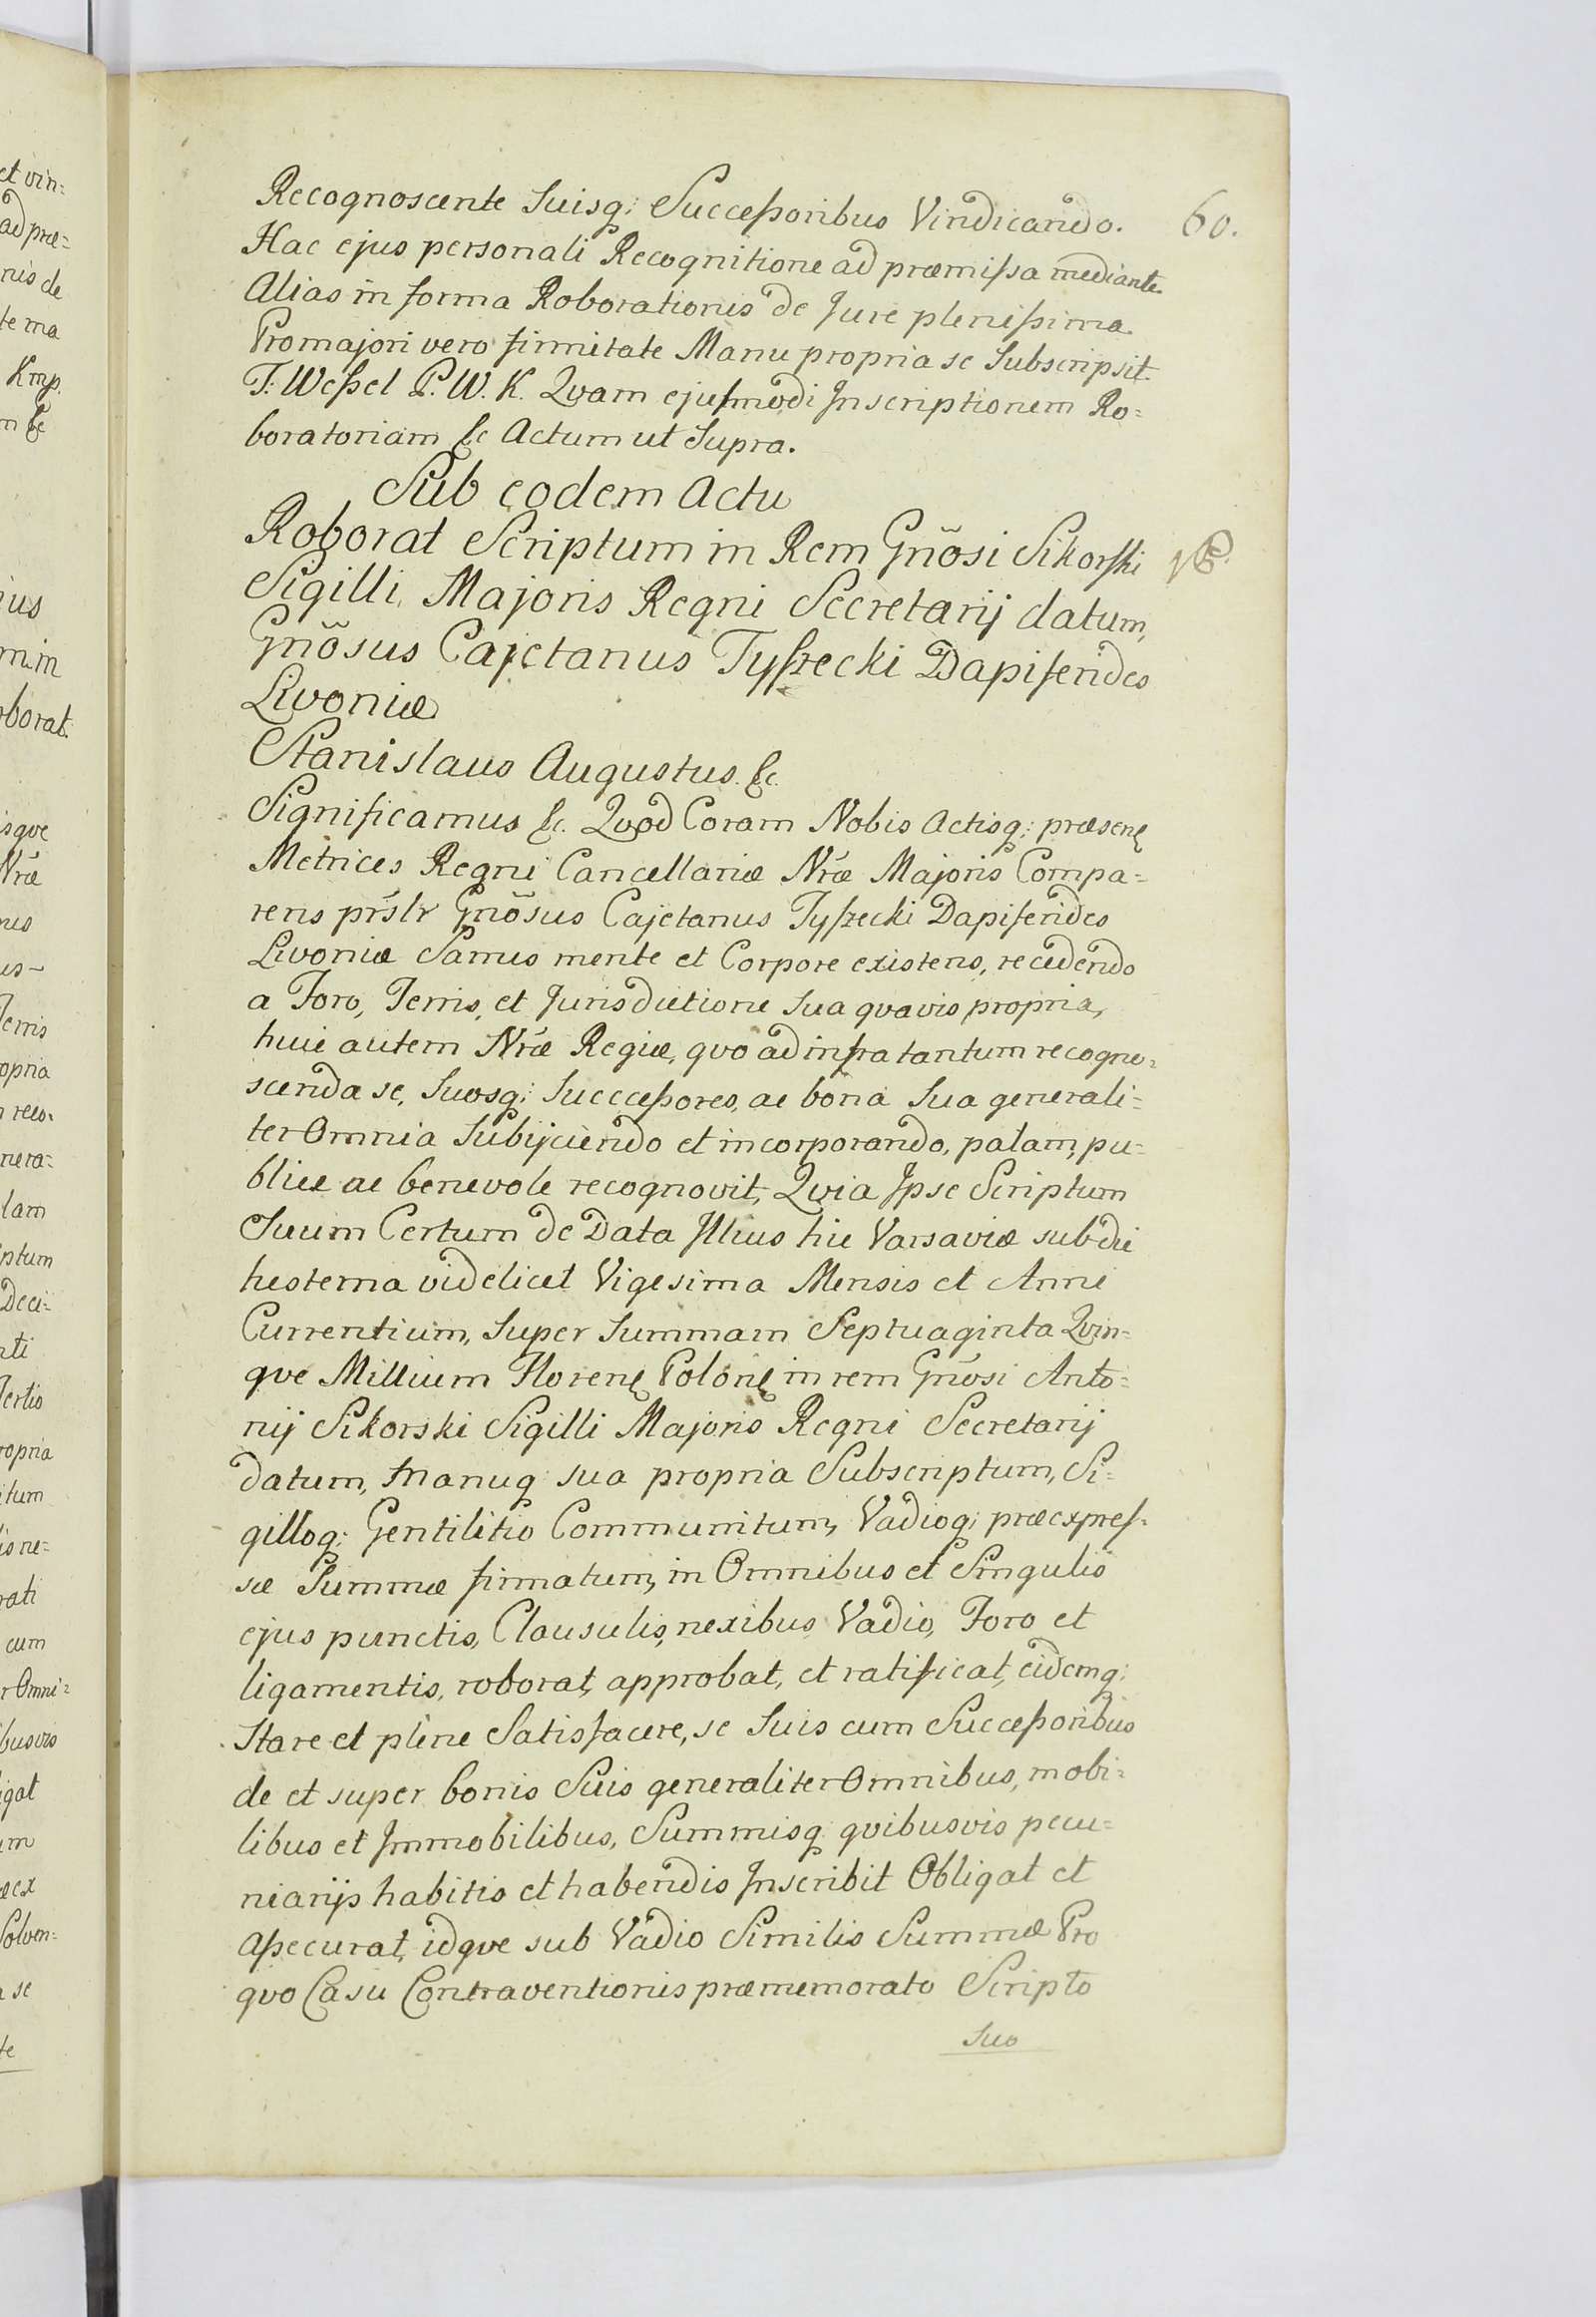 Recognoscente Suisq; Successoribus Vindicando. 60.
Hac ejus personali Recognitione ad præmissa mediante.
Alias in forma Roborationis de Jure plenissima.
Pro majori vero firmitate Manu propria se Subscripsit.
T: Wessel P. W. K. Qvam ejusmodi Inscriptionem Ro=
boratoriam &c Actum ut Supra.
Sub eodem Actu
Roborat Scriptum in Rem Gñosi Sikorski
Sigilli Majoris Regni Secretarij datum,
Gñosus Cajetanus Tyszecki Dapiferides
Livoniæ
Stanislaus Augustus &c.
Significamus &c. Qvod Coram Nobis Actisq; præsen
Metrices Regni Cancellariæ Nræ Majoris Compa=
rens prslr Gñosus Cajetanus Tyszecki Dapiferides
Livoniæ Sanus mente et Corpore existens, recedendo
a Foro, Terris, et Jurisdictione Sua qvavis propria,
huic autem Nræ Regiæ, qvo ad infra tantum recogno=
scenda se, Suosq; Succcessores, ac bona Sua generali=
ter Omnia Subijciendo et incorporando, palam, pu=
blice ac benevole recognovit, Qvia Ipse Scriptum
Suum Certum de Data Illius hic Varsaviæ sub die
hesterna videlicet Vigesima Mensis et Anni
Currentium, Super Summam Septuaginta Qvin=
qve Millium Floren Polon in rem Gñosi Anto=
nij Sikorski Sigilli Majoris Regni Secretarij
datum, manuq sua propria Subscriptum, Si=
gilloq; Gentilitio Communitum, Vadioq; præexpres=
sæ Summæ firmatum, in Omnibus et Singulis
ejus punctis, Clausulis, nexibus Vadio, Foro et
ligamentis, roborat, approbat, et ratificat, eidemq;
Stare et plene Satisfacere, se Suis cum Successoribus
de et super bonis Suis generaliter Omnibus, mobi=
libus et Immobilibus, Summisq qvibusvis pecu=
niarijs habitis et habendis Inscribit Obligat et
assecurat, idqve sub Vadio Similis Summæ Pro
qvo Casu Contraventionis præmemorato Scripto
Suo